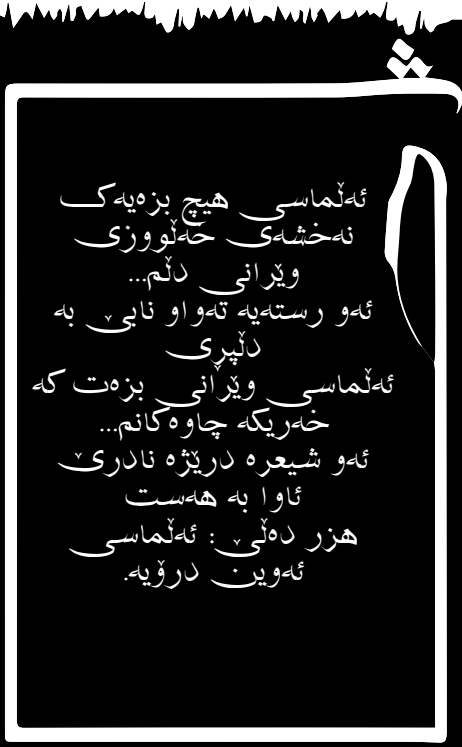 ئەڵماسی هیچ بزەیەک
نەخشەی خەڵووزی
وێرانی دڵم...
ئەو رستەیە تەواو نابێ بە
دڵپری
ئەڵماسی وێرانی بزەت کە
خەریکە چاوەکانم...
ئەو شیعرە درێژە نادرێ
ئاوا بە هەست
هزر دەڵێ: ئەڵماسی
ئەوین درۆیە.